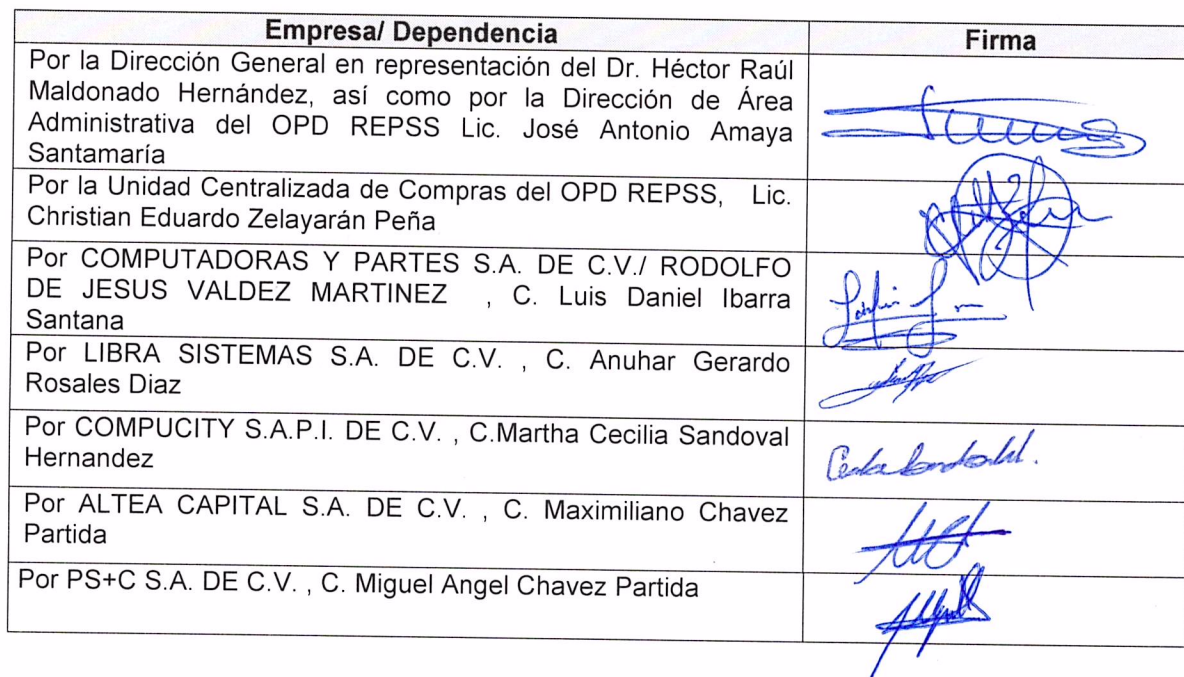 Empresa/ Dependencia
Firma
Por la Dirección General en representación del Dr. Héctor Raúl
Maldonado Hernández, así como por la Dirección de Área
Administrativa del OPD REPSS Lic. José Antonio Amaya
Santamaría
Por la Unidad Centralizada de Compras del OPD REPSS, Lic.
Christian Eduardo Zelayarán Peña
Por COMPUTADORAS Y PARTES S.A. DE C.V./ RODOLFO
DE JESUS VALDEZ MARTINEZ , C. Luis Daniel Ibarra
Santana
Por LIBRA SISTEMAS S.A. DE C.V. , C. Anuhar Gerardo
Rosales Diaz
Por COMPUCITY S.A.P.I. DE C.V. , C.Martha Cecilia Sandoval
Hernandez
Por ALTEA CAPITAL S.A. DE C.V. , C. Maximiliano Chavez
Partida
Por PS+C S.A. DE C.V. , C. Miguel Angel Chavez Partida